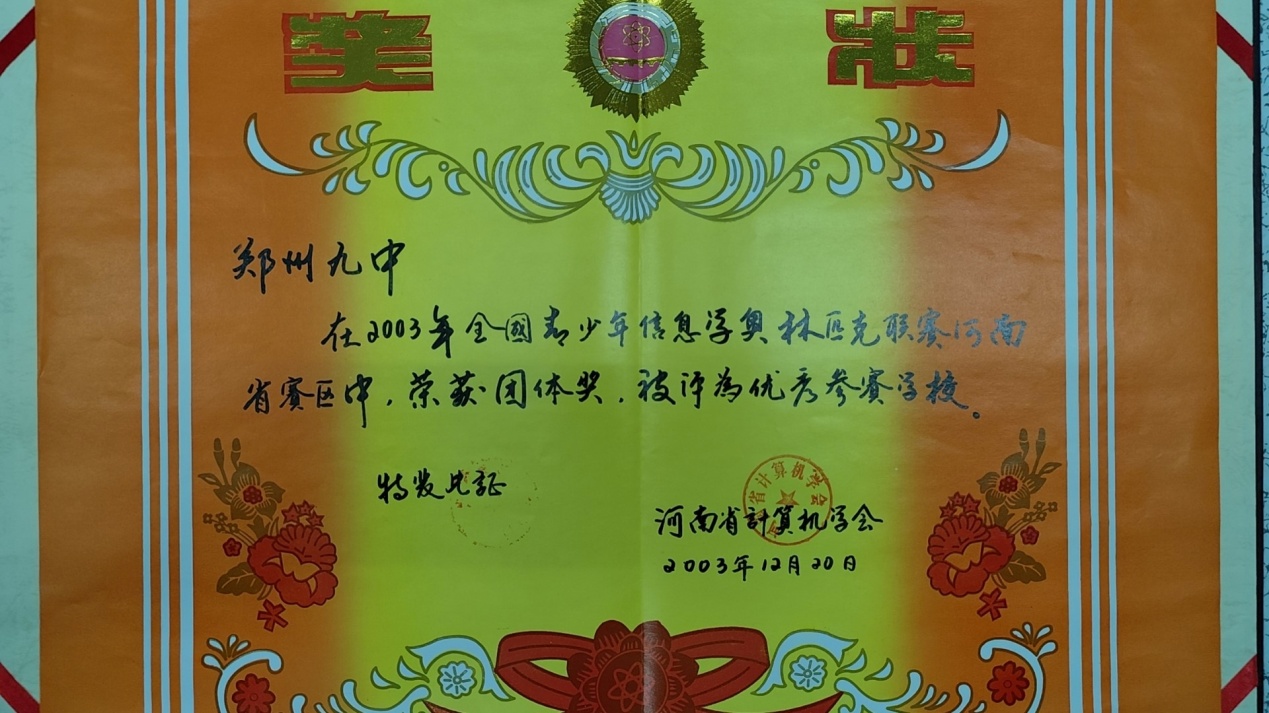 奖状
郑州九中
在2003年全國青少年信息学奥林匹克联赛河南
省赛区中，荣获团体奖，被评为优秀参赛学校。
特发此証
省计算机学会
河南省計算机学会
2003年12月20日